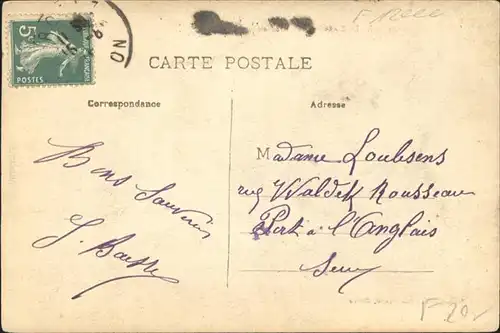 5
POSTES
CARTE POSTALE
Correspondance
Adresse
Bons Souvenirs
Madame Loubsens
rue Waldek Rousseau
Port à l'Anglais
Seine
F 20